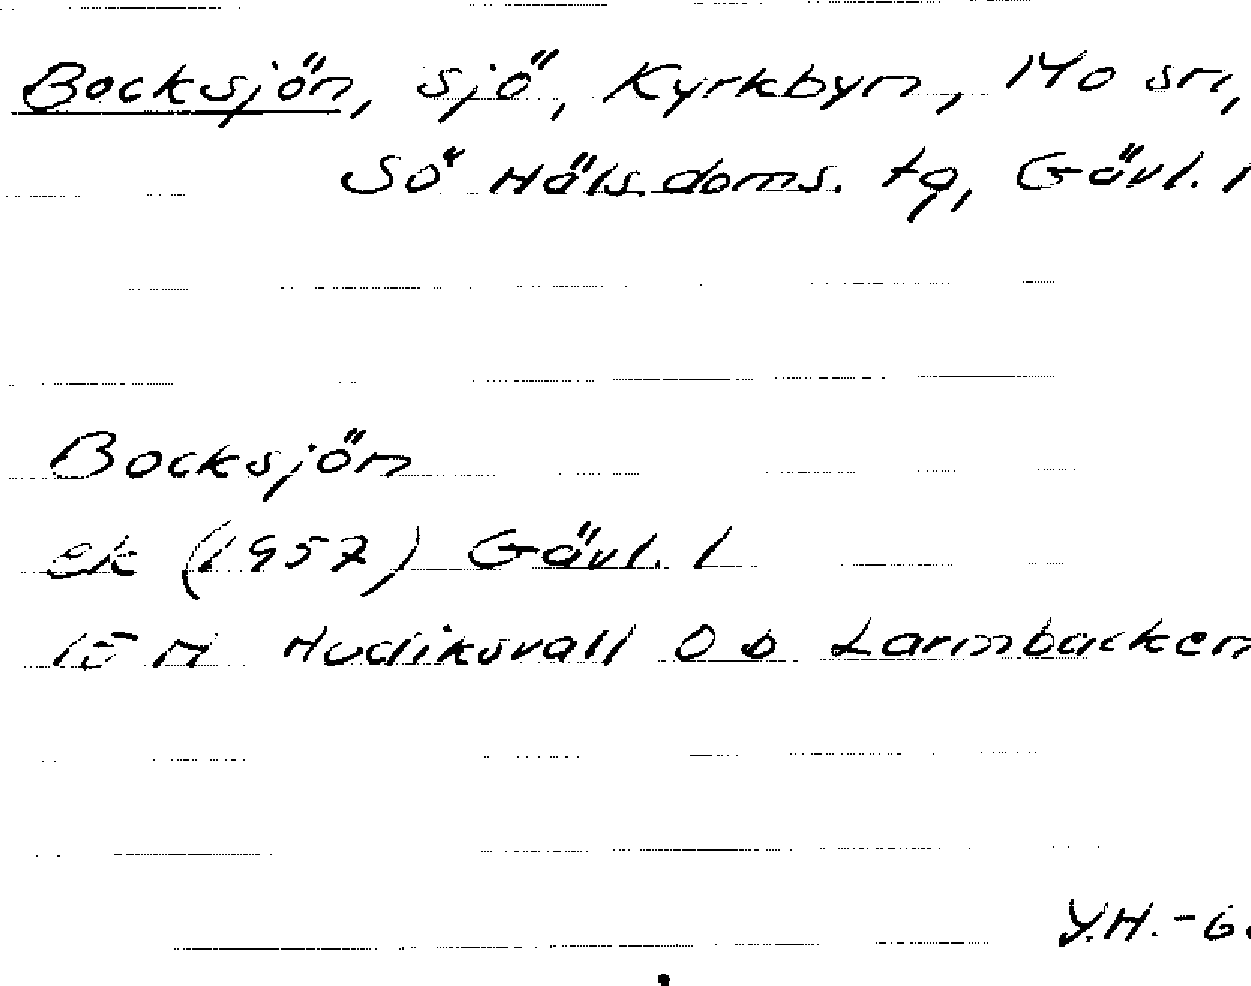 Bocksjön, sjö, Kyrkbyn, Mo sn,
Sö Häls. doms. tg, Gävl. l
Bocksjön
ek (1957) Gävl. l
15 H Hudiksvall 0 b Larmbacken
Y.H. - 6